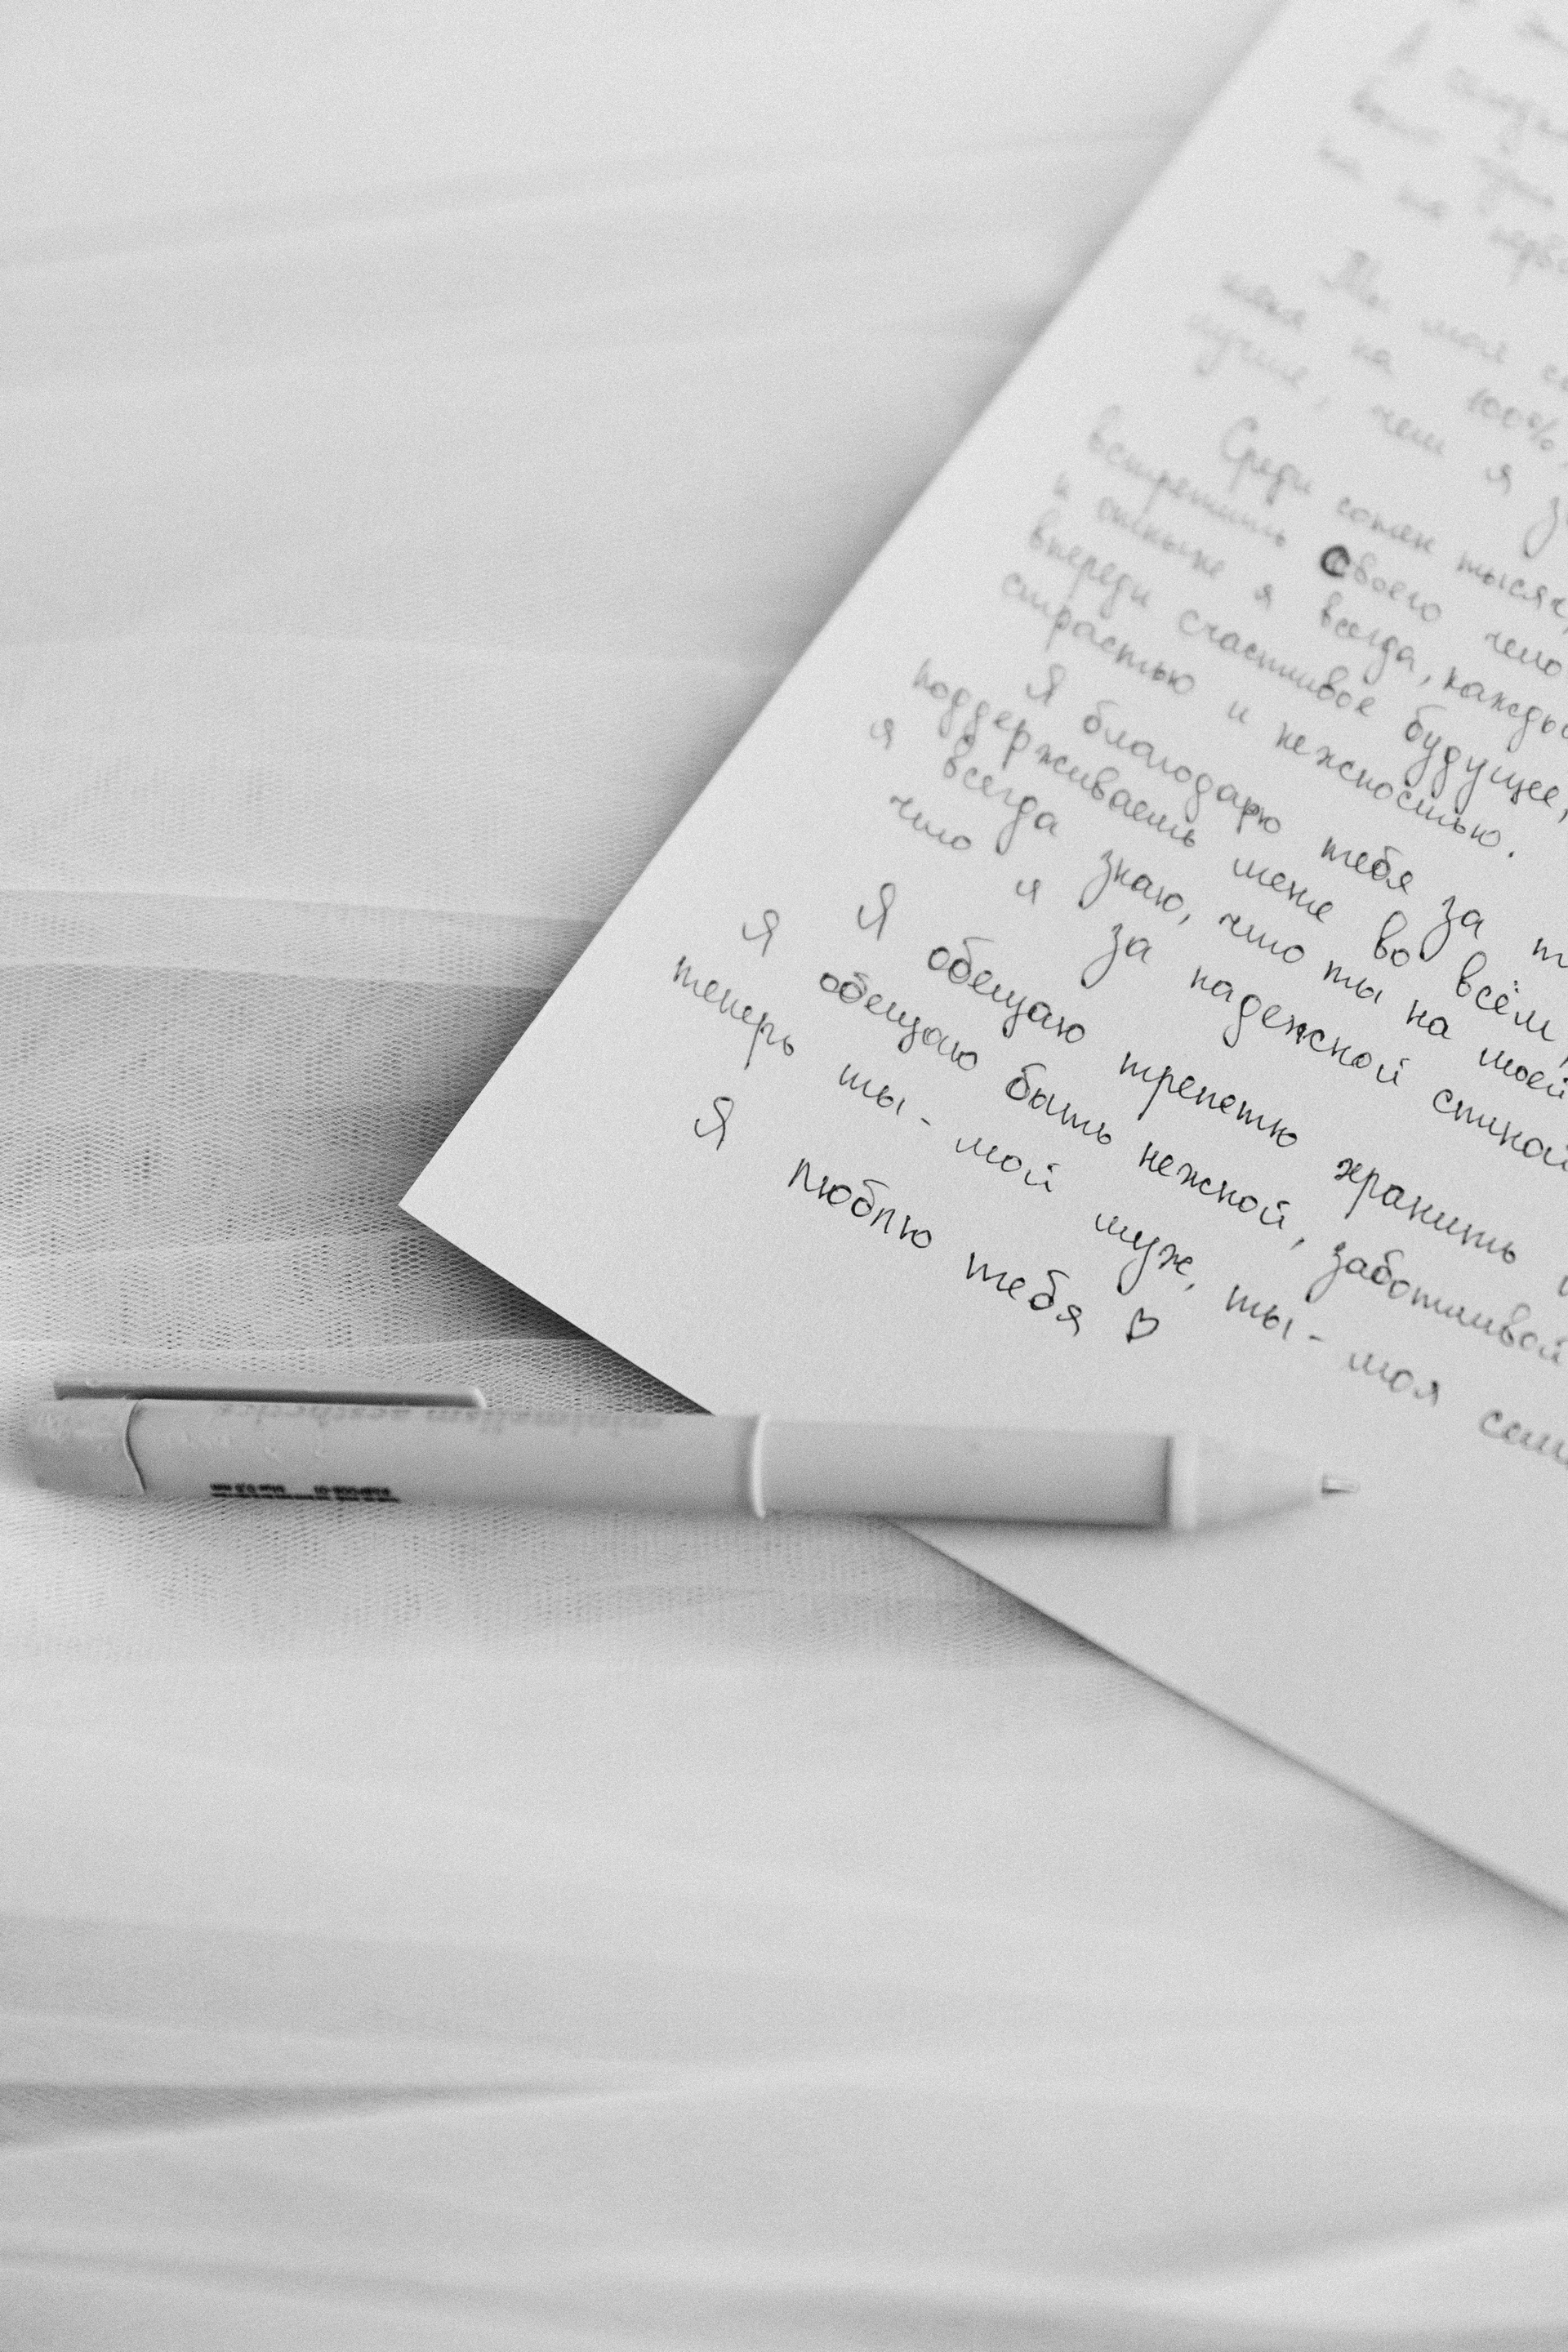 на 100%,
лучше, чем я
Среди сотен тысяч,
встретить своего чело
и отныне я всегда, кажды
впереди счастливое будущее,
страстью и нежностью.
Я благодарю тебя за т
поддерживаешь меня во всём,
я всегда знаю, что ты на моей
что я за надежной спиной
Я обещаю трепетно хранить
Я обещаю быть нежной, заботливой
теперь ты - мой муж, ты - моя семь
Я люблю тебя ♡